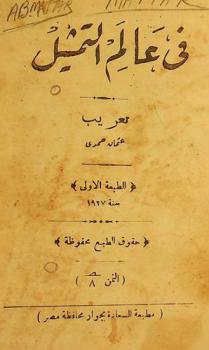 ABMATAR MATTAR
في عالم التمثيل
تعريب
عثمان حمدى
﴿ الطبعة الاولى ﴾
سنة ١٩٢٧
﴿ حقوق الطبع محفوظة ﴾
( الثمن ٨ )
( مطبعة السعادة بجوار محافظة مصر )